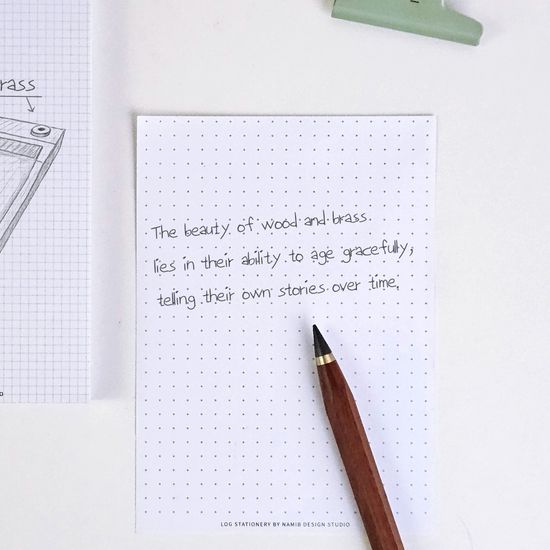 rass
The beauty of wood and brass
lies in their ability to age gracefully,
telling their own stories over time.
LOG STATIONERY BY NAMIB DESIGN STUDIO